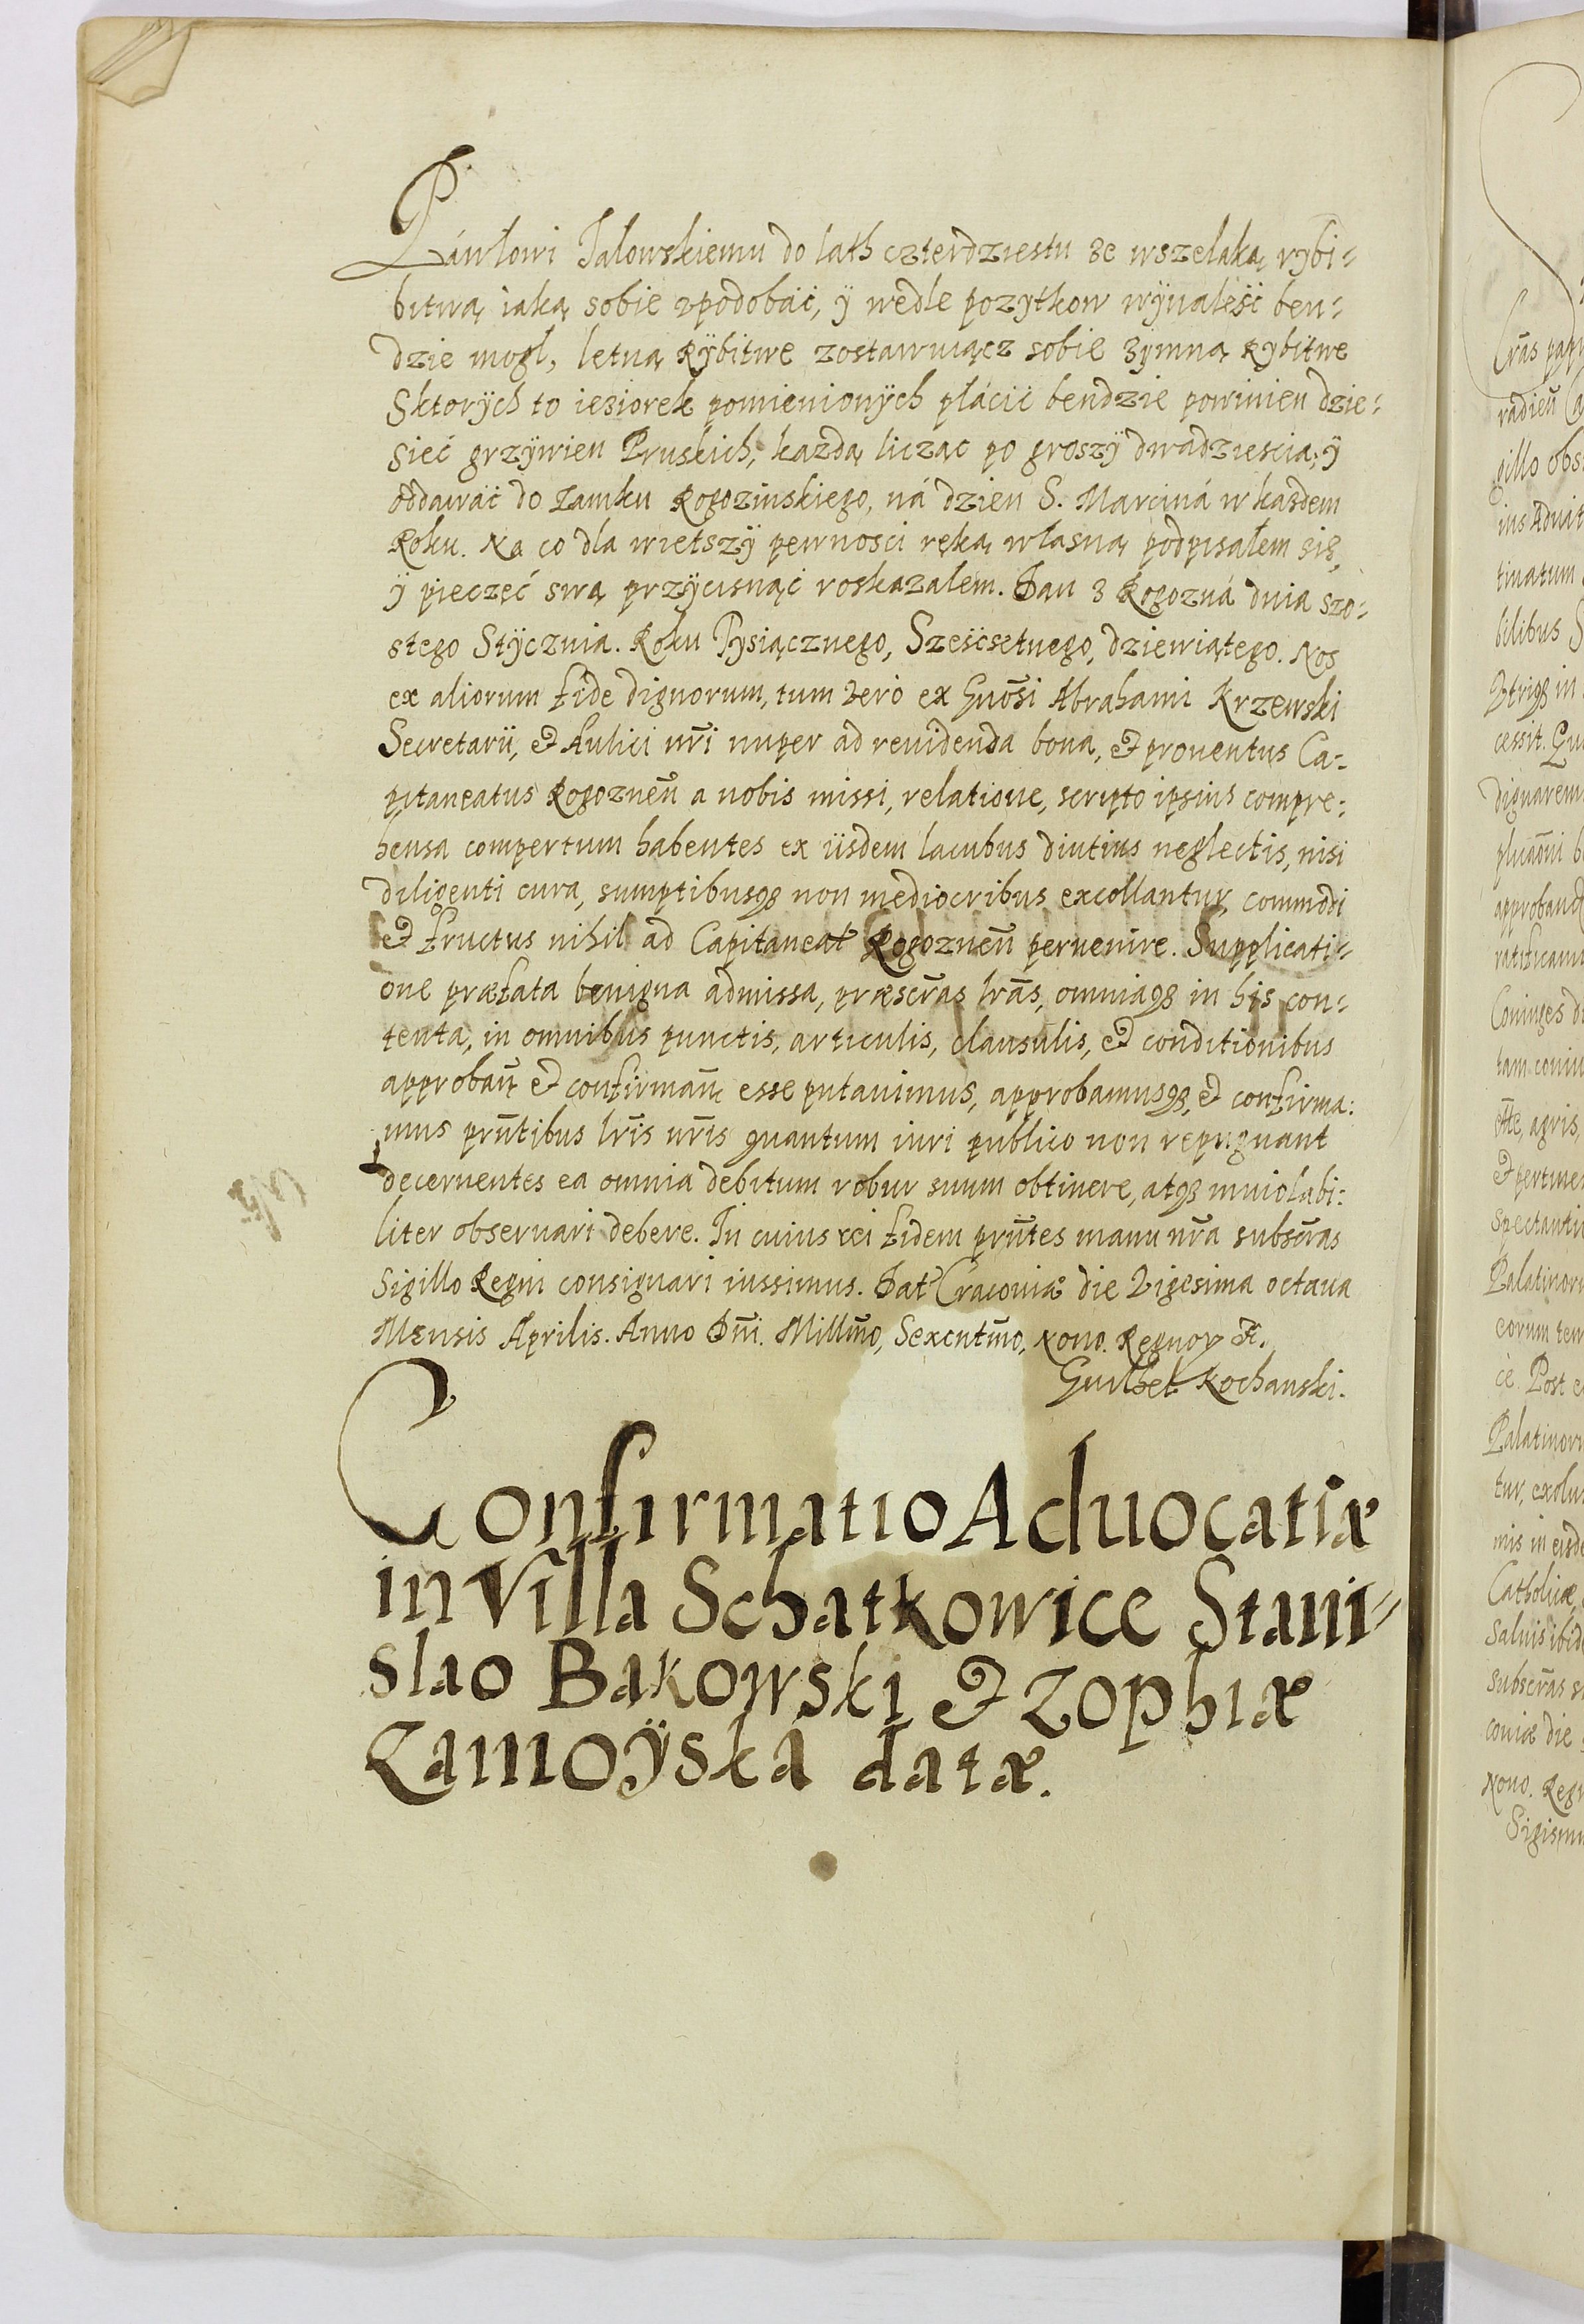 Páwłowi Jalowskiemu do lath czterdziestu ze wszelaką rybi-
bitwą iaką sobie vpodobáć, ÿ wedle pozytkow wÿnaleść ben-
dzie mogl, letną Rÿbitwe zostawuiącz sobie zÿmną Rybitwe
Sktorÿch to ieziorek pomienionÿch płácić bendzie powinien dzie-
sieć grzÿwien Pruskich, kazdą licząc po groszÿ dwadziescia, ÿ
oddawáć do Zamku Rogozinskiego, ná dzien S. Marciná w kazdem
Roku. Na co dla wietszÿ pewnosci ręką własną podpisalem się,
ÿ pieczęć swą przÿcisnąć roskazalem. Dan z Rogozná dnia szo-
stego Stÿcznia. Roku Tysiącznego, Sześćsetnego, dziewiątego. Nos
ex aliorum fide dignorum, tum vero ex Gnōsi Abrahami Krzewski
Secretarii, et Aulici nr̄i nuper ad reuidenda bona, et prouentus Ca-
pitaneatus Rogozneñ a nobis missi, relatione, scripto ipsius compre-
hensa compertum habentes ex iisdem lacubus diutius neglectis, nisi
diligenti cura, sumptibusq3 non mediocribus excollantur, commodi
et fructus nihil ad Capitaneat Rogozneñ peruenire. Supplicati-
one præfata benigna admissa, præscr̄as lr̄as, omniaq3 in his con-
tenta, in omnibus punctis, articulis, clausulis, et conditionibus
approban̄ et confirman̄ esse putauimus, approbamusq3, et confirma-
mus prn̄tibus lr̄is nr̄is quantum iuri publico non repugnant
decernentes ea omnia debitum robur suum obtinere, atq3 inuiolabi-
liter obseruari debere. In cuius rei fidem prn̄tes manu nr̄a subscr̄as
Sigillo Regni consignari iussimus. Dat Cracouiæ die Vigesima octaua
Mensis Aprilis. Anno Dn̄i. Millm̄o, Sexcentm̄o, Nono. Regnor etc.
Guilhel. Kochanski.
Confirmatio Aduocatiæ
in Villa Schatkowice Stani-
slao Bakowski et Zophiæ
Zamoÿska datæ.